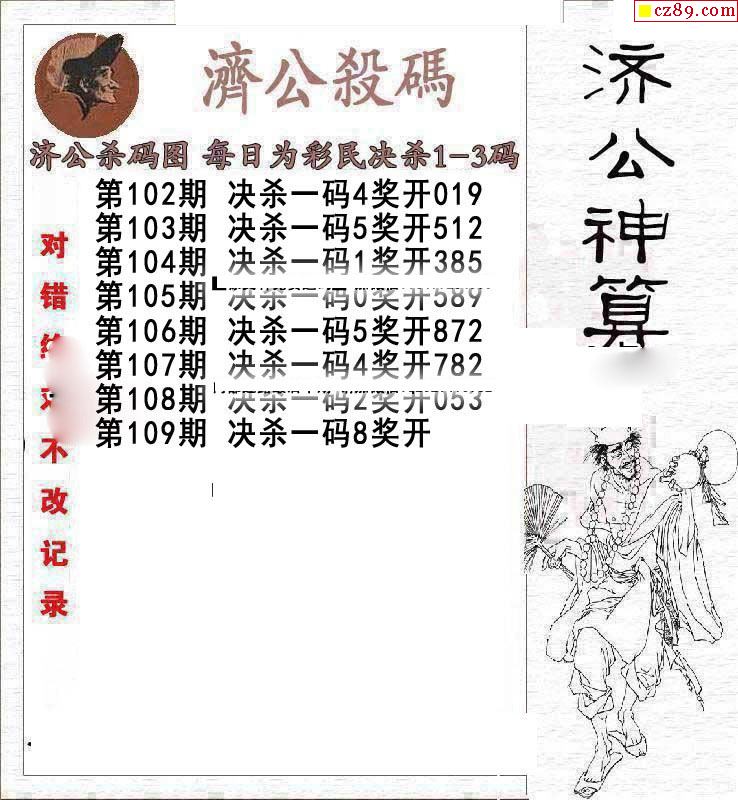 cz89.com
濟公殺碼
济公杀码图 每日为彩民决杀1-3码
第102期 决杀一码4奖开019
第103期 决杀一码5奖开512
第104期 决杀一码1奖开385
第105期 决杀一码0奖开589
第106期 决杀一码5奖开872
第107期 决杀一码4奖开782
第108期 决杀一码2奖开053
第109期 决杀一码8奖开
对错绝对不改记录
济公神算